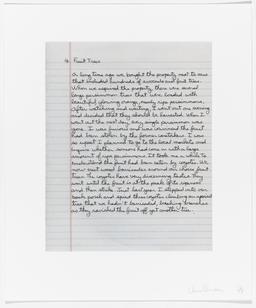 4. Fruit Trees
A long time ago we bought the property next to ours
that included hundreds of avocado and fruit trees.
When we acquired the property, there were several
large persimmon trees that were loaded with
beautiful, glowing orange, nearly ripe persimmons.
After watching and waiting, I went out one evening
and decided that they should be harvested. When I
went out the next day, every single persimmon was
gone. I was furious and was convinced the fruit
had been stolen by the former caretaker. I was
so upset I planned to go to the local markets and
inquire whether someone had come in with a large
amount of ripe persimmons. It took me a while to
understand the fruit had been eaten by coyotes. We
now erect wood barricades around our choice fruit
trees. The coyotes have very discerning tastes. They
wait until the fruit is at the peak of its ripeness
and then strike. Just last year I stepped into our
back porch and spied three coyotes climbing an apricot
tree that we hadn't barricaded, breaking branches
as they ravished the fruit off yet another tree.